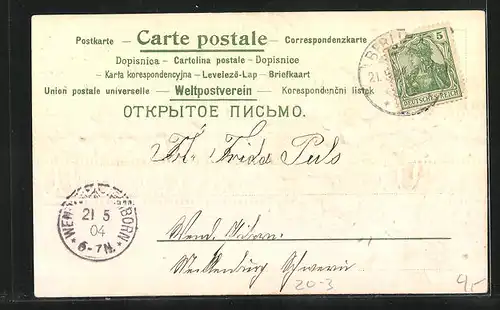 Postkarte — Carte postale — Correspondenzkarte
Dopisnica — Cartolina postale - Dopisnice
— Karta korespondencyjna — Levelező-Lap — Briefkaart
Union postale universelle — Weltpostverein — Korespondenční listek
ОТКРЫТОЕ ПИСЬМО.
BERLIN
21.
5
DEUTSCHES REICH
Frl. Frida Puls
WEND BORN
21 5
04
6-7N.
Wend.
Mecklenburg Schwerin
20-3
4,-